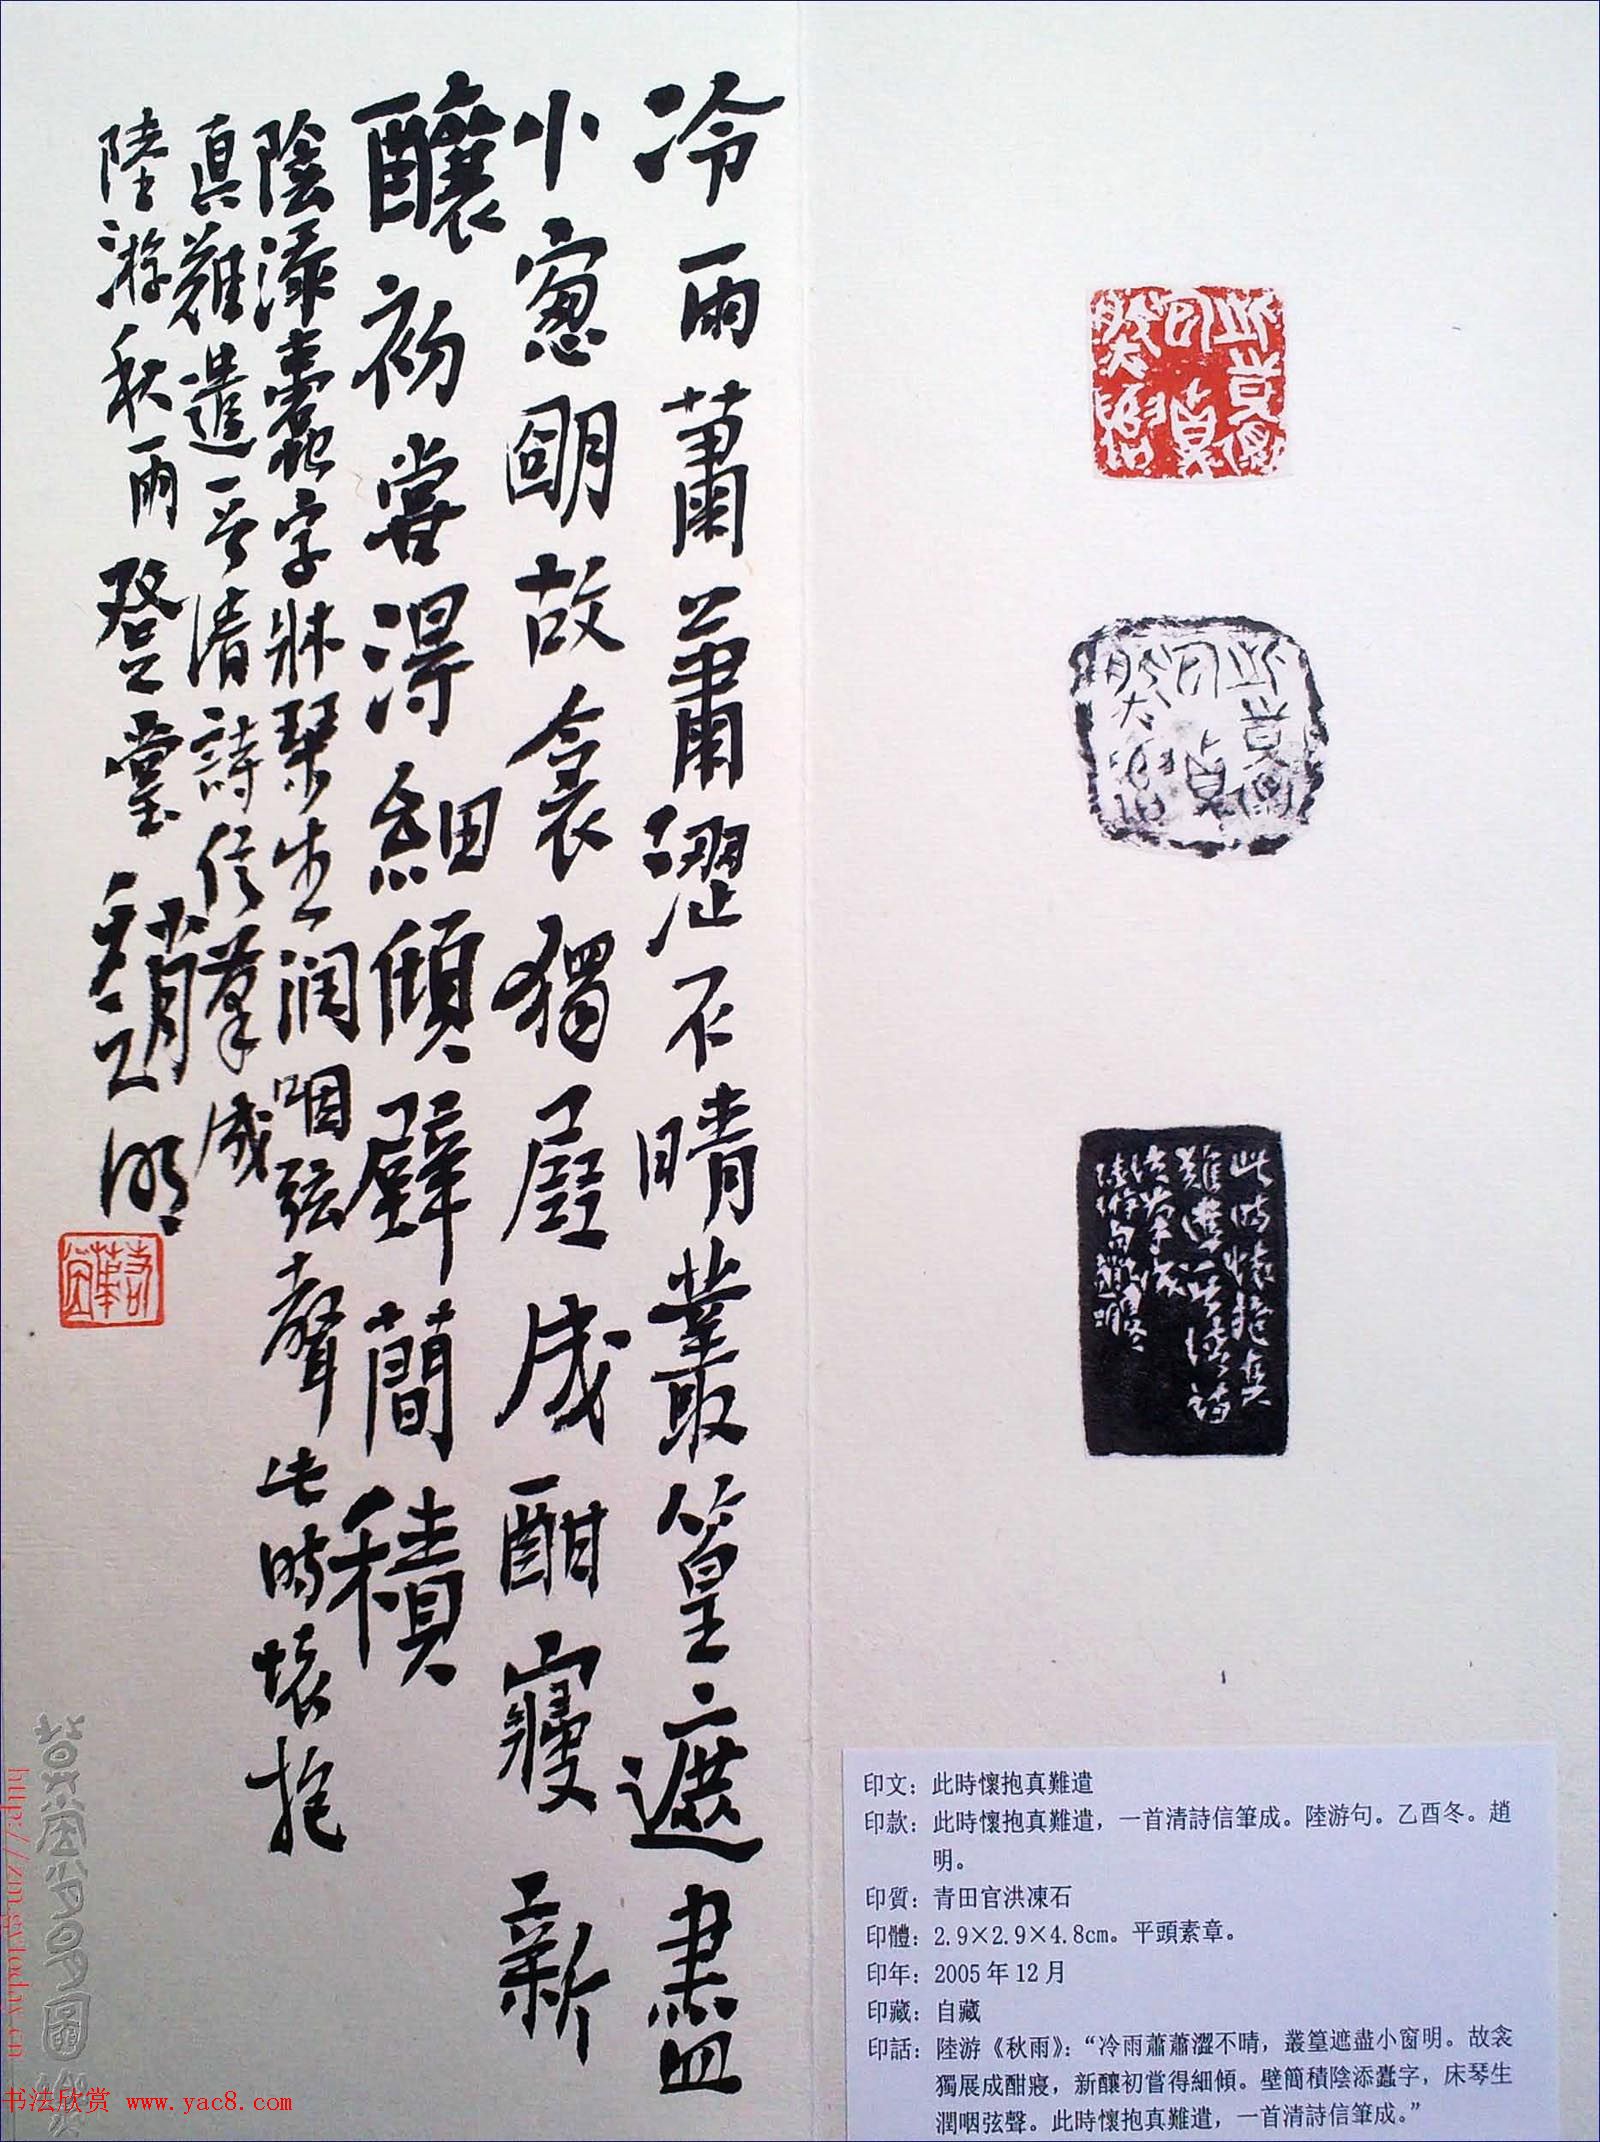 冷雨蕭蕭澀不晴叢篁遮盡
小窗明故衾獨展成酣寢新
釀初嘗得細傾壁簡積
陰添蠹字牀琴生润咽弦聲此時懷抱
真難遣一首清詩信筆成
陸游秋雨登堂趙明
此時懷抱真
難遣一首清詩
信筆成
印文：此時懷抱真難遣
印款：此時懷抱真難遣，一首清詩信筆成。陸游句。乙酉冬。趙
明。
印質：青田官洪凍石
印體：2.9×2.9×4.8cm。平頭素章。
印年：2005年12月
印藏：自藏
印話：陸游《秋雨》：“冷雨蕭蕭澀不晴，叢篁遮盡小窗明。故衾
獨展成酣寢，新釀初嘗得細傾。壁簡積陰添蠹字，床琴生
潤咽弦聲。此時懷抱真難遣，一首清詩信筆成。”
书法欣赏 www.yac8.com